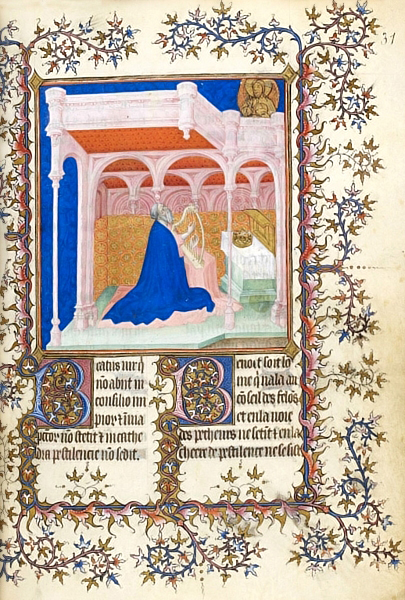 31
Beatus uir q
nō abiit in
consilio im
pior ⁊ ī uia
pctor nō stetit ⁊ in cathe
dra pestilencie nō sedit.
Benoit soit lo
me q̄ nala au
cōseil des felōs
et en la uoie
des pecheurs ne se tit ⁊ en la
chaere de pestilence ne se